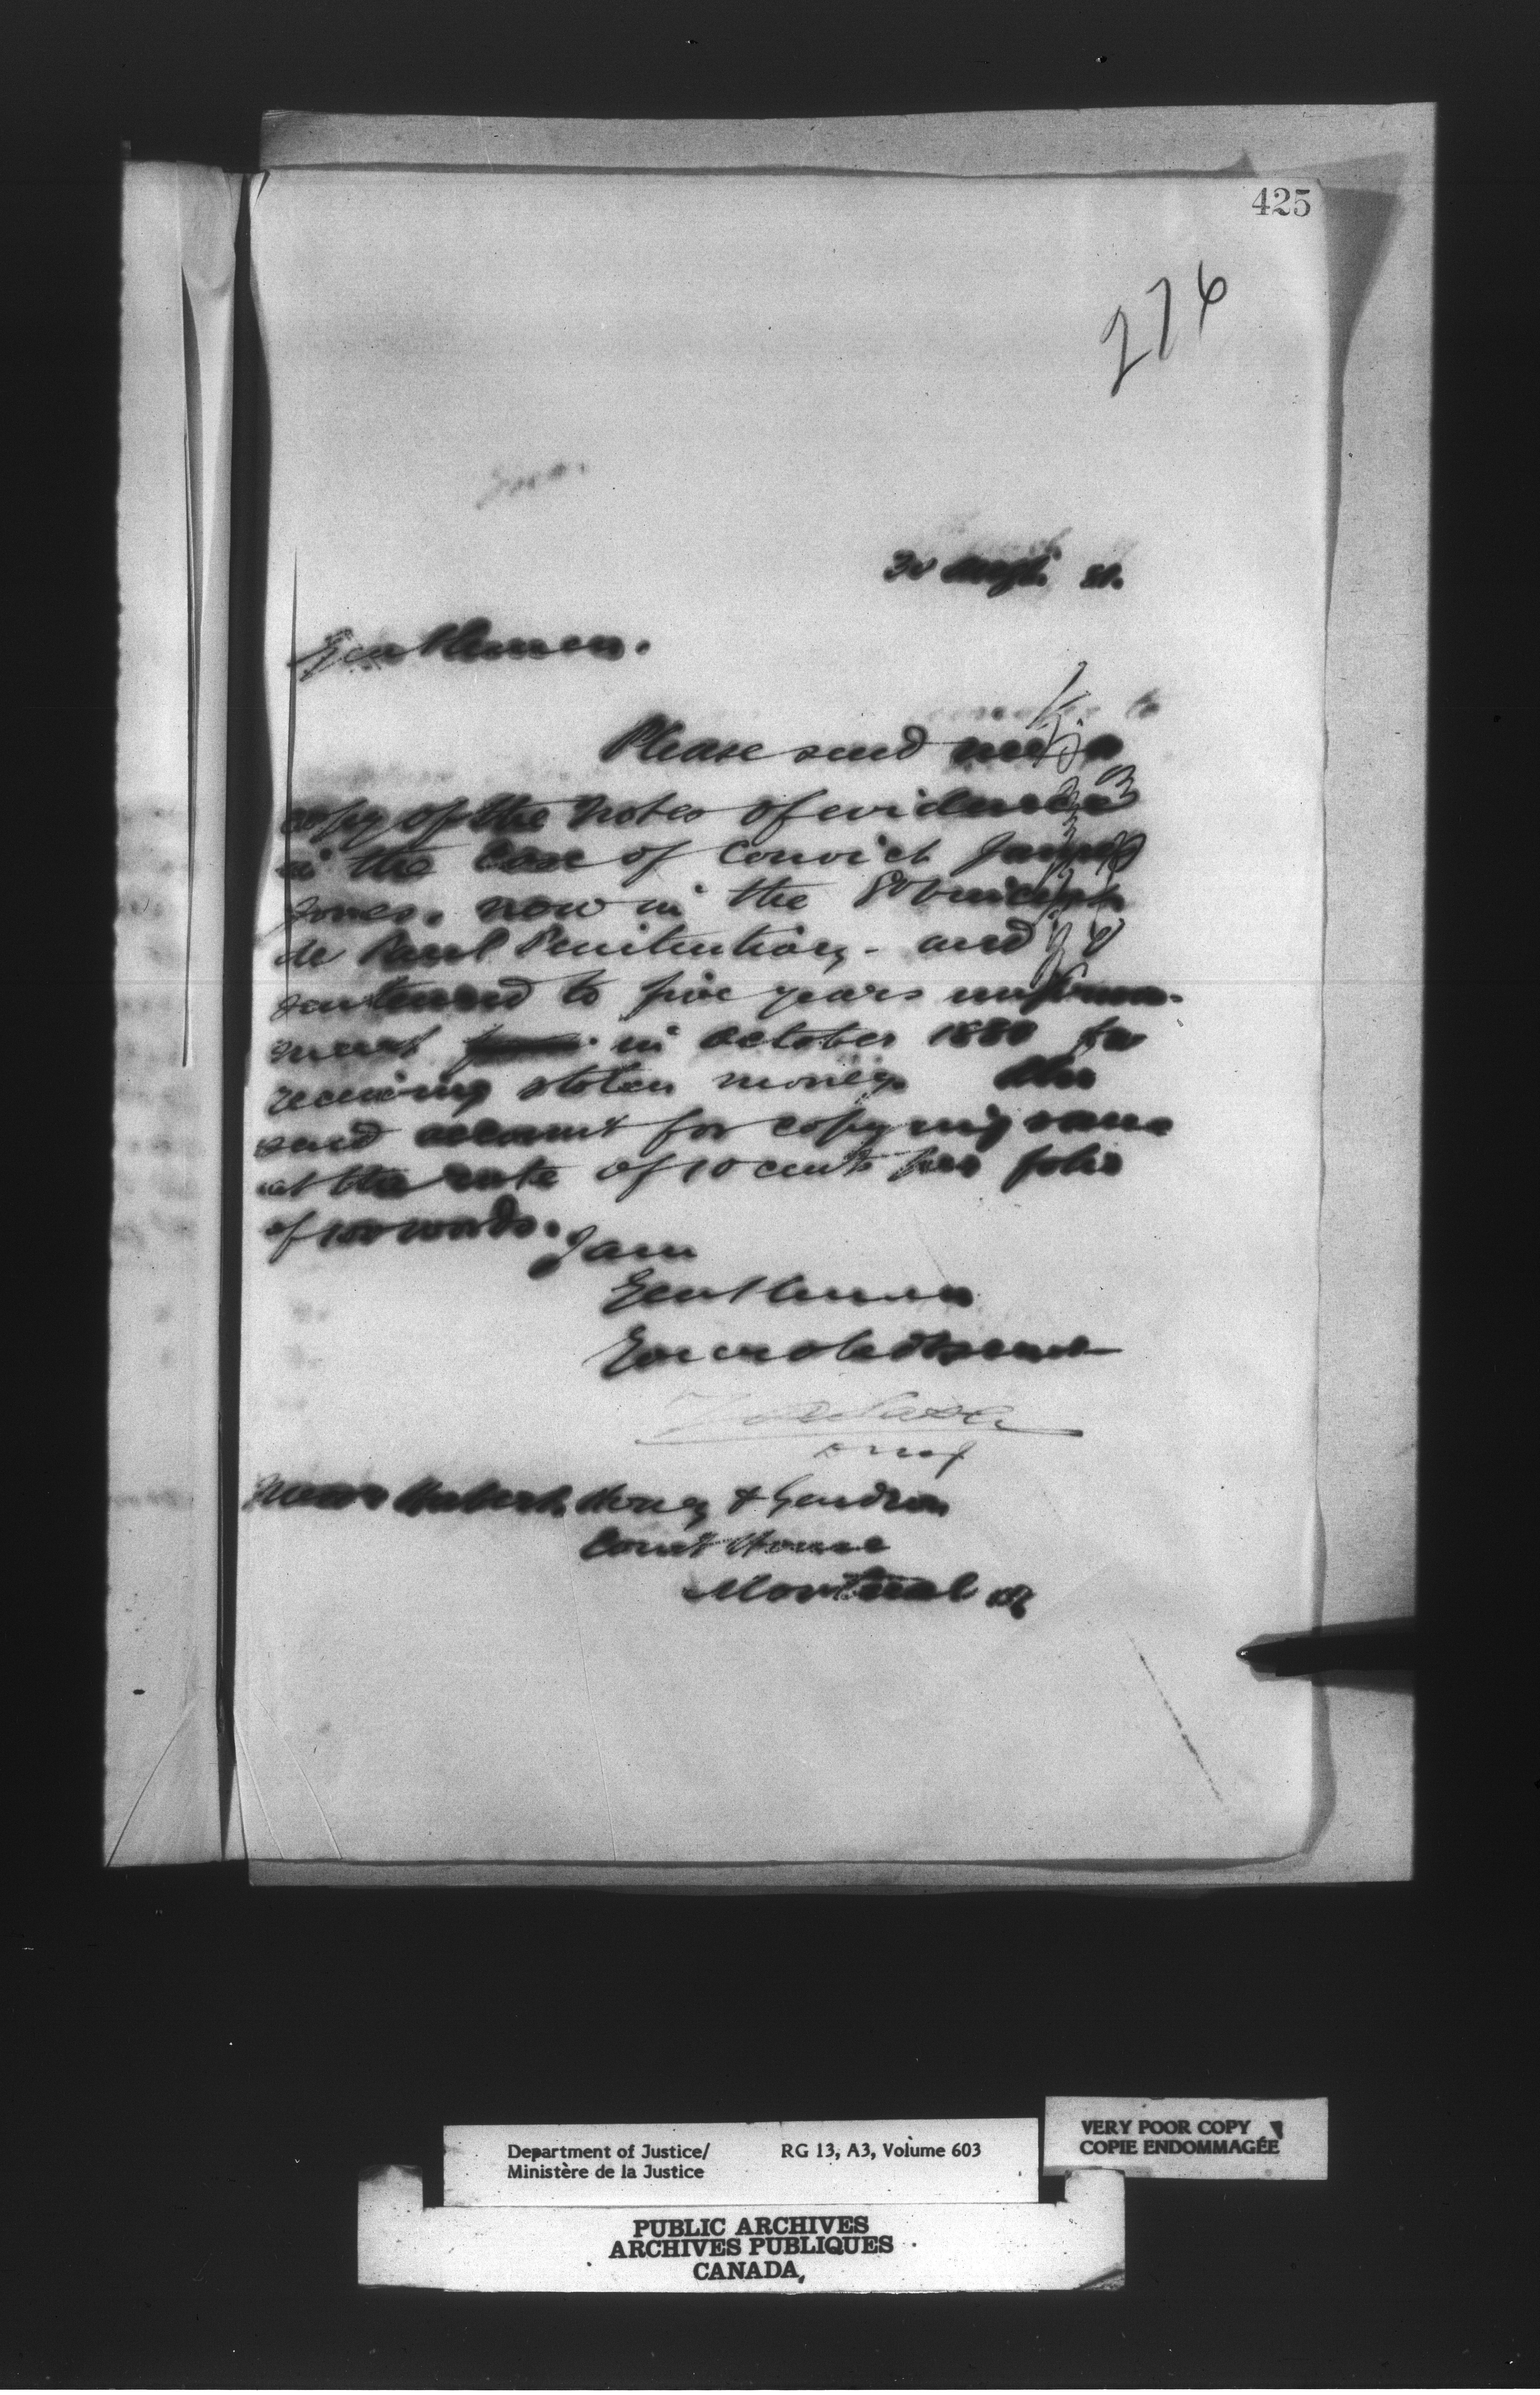 425
276
30 Sept. 81.
Gentlemen.
Please send me a
copy of the notes of evidence
in the Case of Convict James
Jones. now in the St Vincent
de Paul Penitentiary - and
sentenced to five years imprison-
ment in October 1880 for
receiving stolen money. Also
send account for copying same
at the rate of 10 cents per folio
of 100 words.
I am
Gentlemen
Your obedt servt
Messrs Hubert, Honey & Gendron
Court House
Montreal
Department of Justice/ RG 13, A3, Volume 603
Ministère de la Justice
VERY POOR COPY
COPIE ENDOMMAGÉE
PUBLIC ARCHIVES
ARCHIVES PUBLIQUES
CANADA